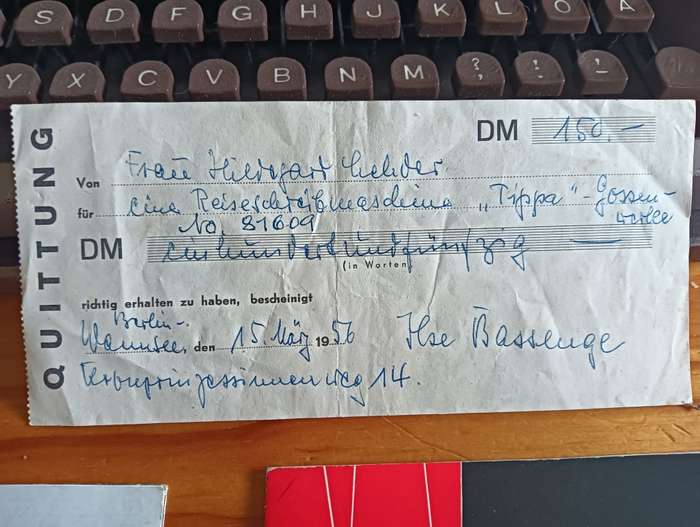 S D F G H J K L Ö Ä
Y X C V B N M ? , ! . -
QUITTUNG
DM 150.—
Von Frau Hildegart
für eine Reiseschreibmaschine „Tippa" - Gossen-
No. 81609 werke
DM einhundertundfünfzig —
(in Worten)
richtig erhalten zu haben, bescheinigt
Berlin-
Wannsee, den 15. März 1956 Ilse Bassenge
Kronprinzessinnenweg 14.